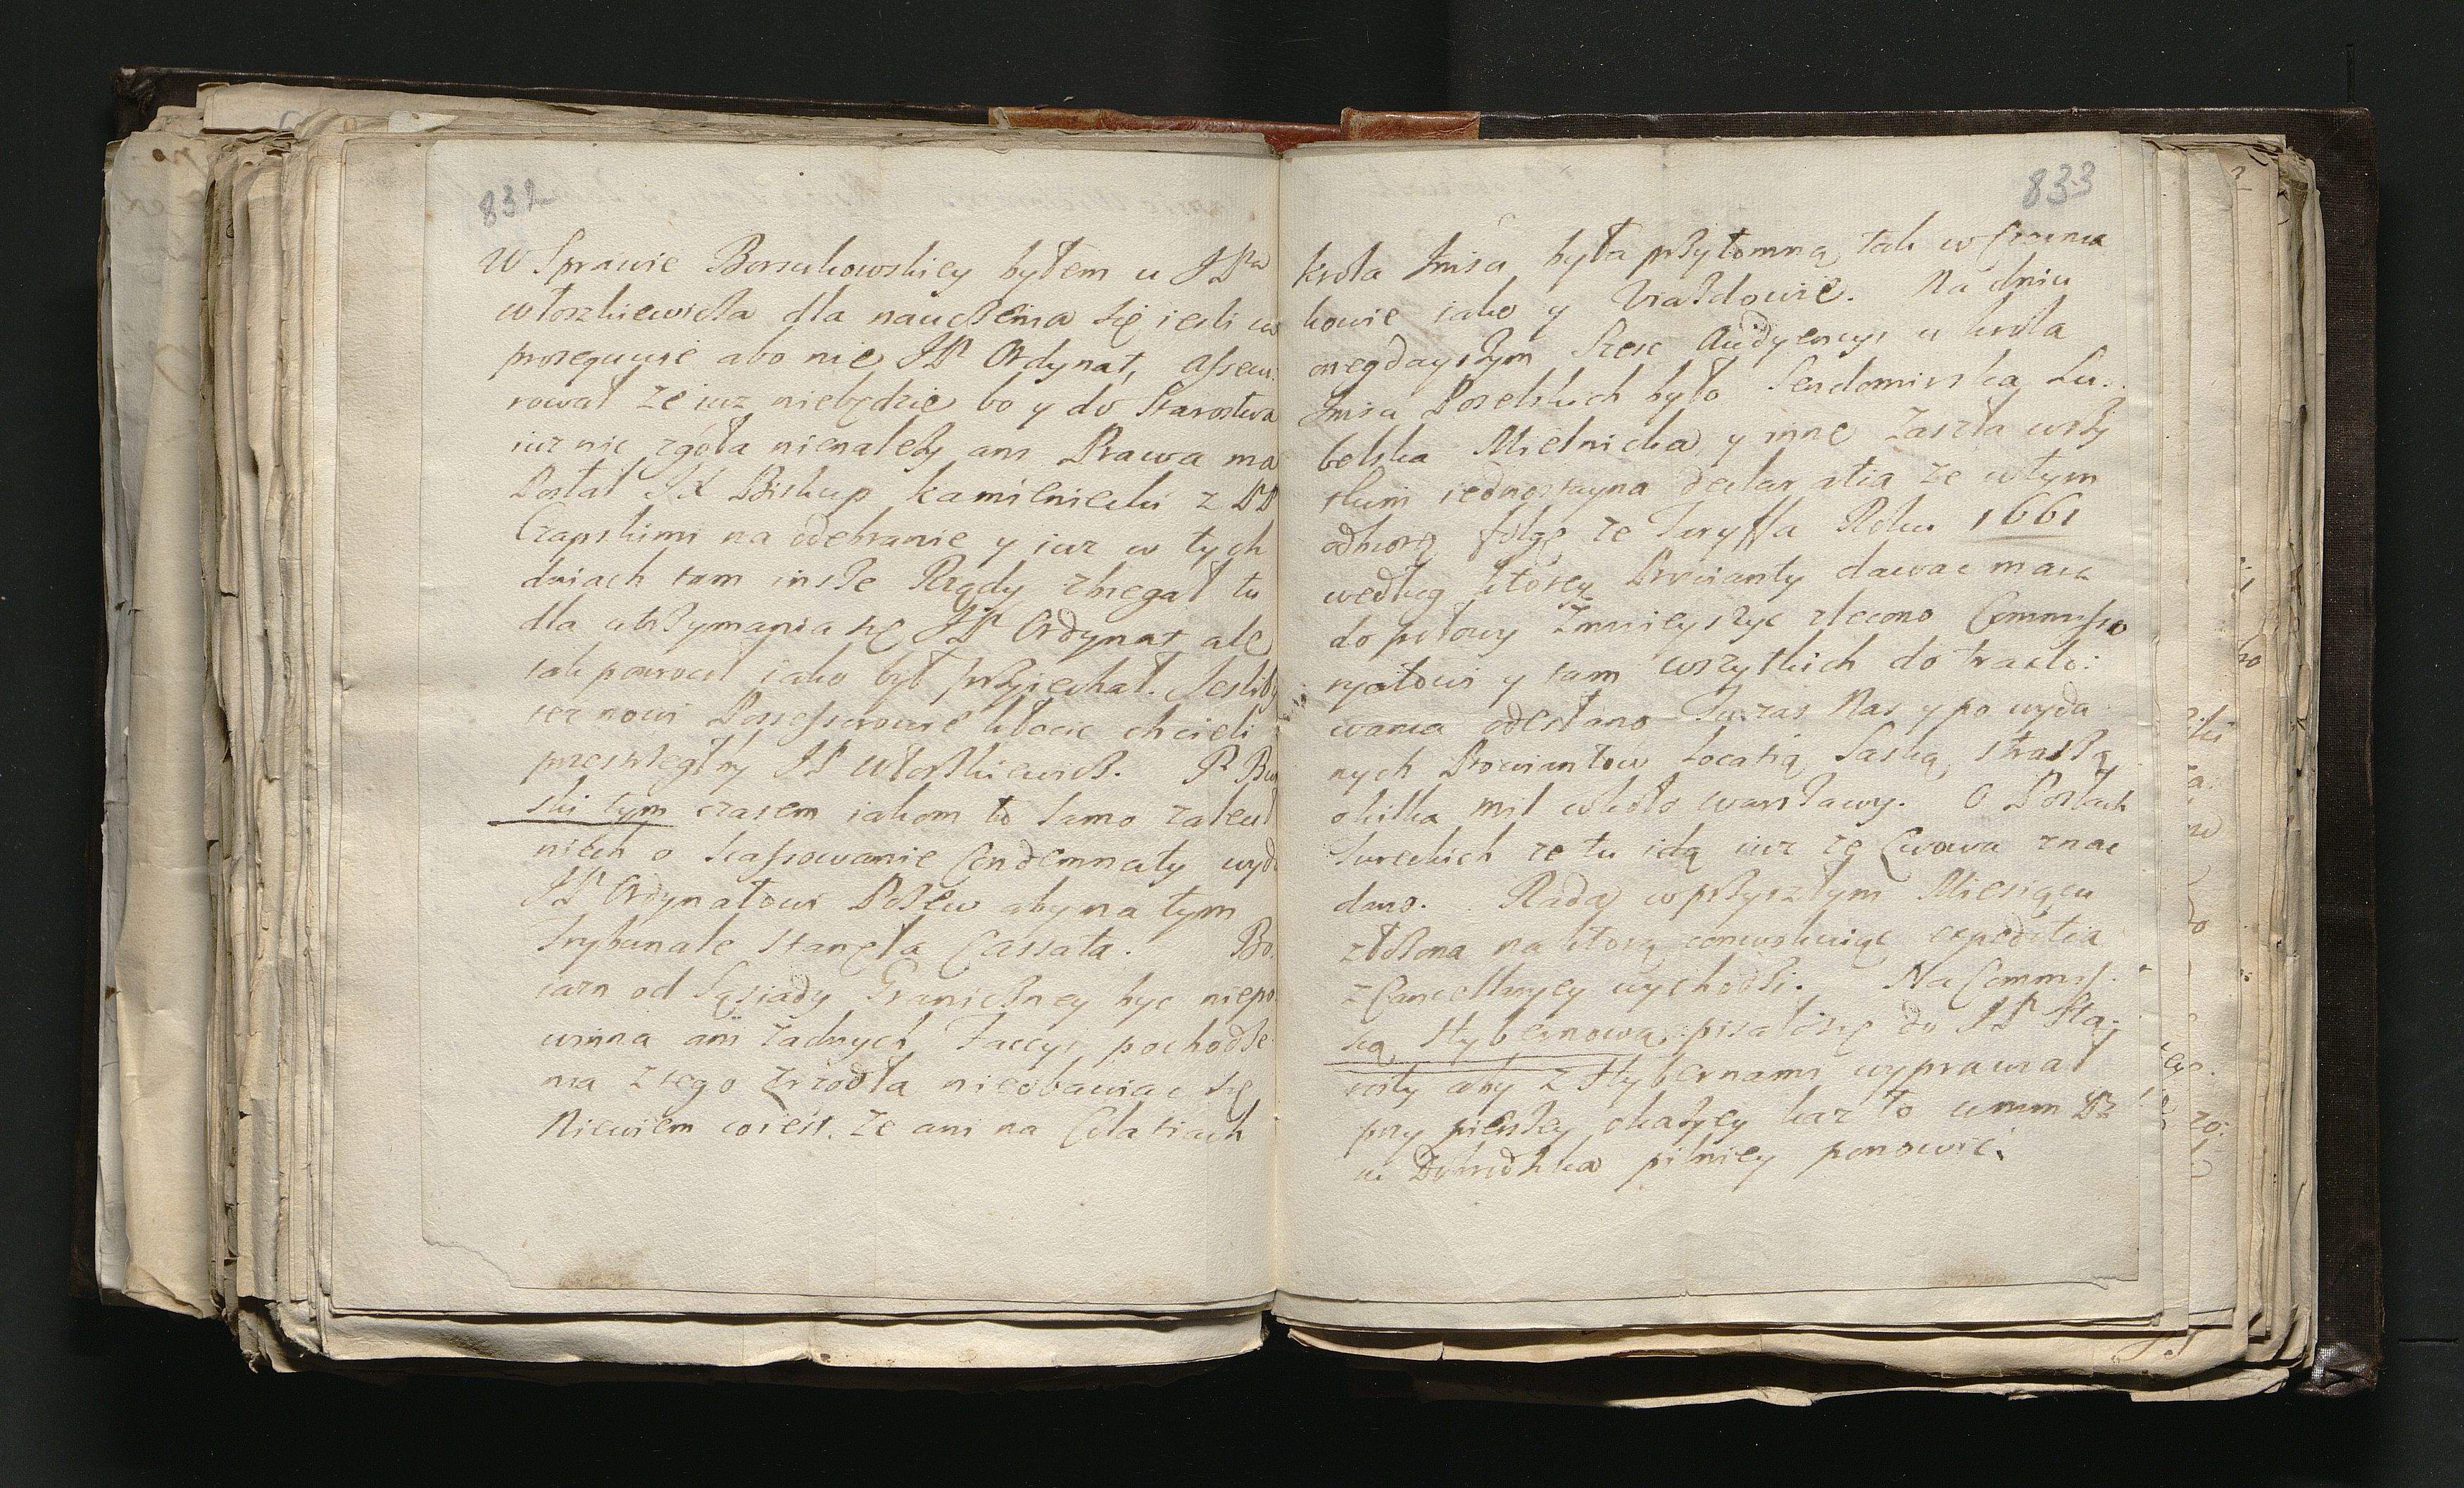 832
W Sprawie Borsukowskiey byłem u JPa
włoszkiewicza dla nauczenia się iesli co
prosequuie abo nie JP Ordynat, assecu:
rował że iuz niebędzie bo y do Starostwa
iuz nic zgoła nienależy ani Prawa ma
Posłał JX Biskup kamieniecki z PP
Czapskimi na odebranie y iuz w tych
dniach tam insze Rządy zbiegał tu
dla utrzymania się JP Ordynat ale
tak powrocił iako był przyiechał. Jesliby
tez nowi Possessorowie kłocic chcieli
przestrzegł by JP Włoszkiewicz. P. Bu
ski tym czasem iakom to samo zalecił
niech o scassowanie Condemnaty wyda
JP Ordynatowi Pozew aby na tym
Trybunale stanęła Cassata. Bo
iazn od Sąsiady Graniczney byc niepo
winna ani żadnych Faccyi pochodze
nia z tego zrzodła nieobawiac się
Niewiem coiest. że ani na Colatiach
833
krola Jmsci była przytomną tak w Czernia
kowie iako y Uiazdowie. Na dniu
onegdayszym szesc Audyencyi u krola
Jmsci Poselskich było Sendomirska Lu:
belska Mielnicka y inne zaszła wszy
stkim iednostayna declaratia że w tym
odbiorą folgę że Taryffa Roku 1661
według ktorey Prowianty dawac maią
do połowy zmnieyszyc zlecono Commissa
ryatowi y tam wszytkich do tracto:
wania odesłano Tu zas Nas y po wyda
nych Prowiantow Locatią Saską straszą
o kilka mil wkoło warszawy. O Posłach
Tureckich ze tu idą iuz ze Lwowa znac
dano. Rada w przyszłym Miesiącu
złożona na ktorą conwokuiąc expeditia
z Cancellaryey wychodzi. Na Commis:
sią Hybernową pisałosię do JP Sta:
rosty aby z Hybernami wyprawiał
przy pierszey okazyey kaz to WMM Pa
u Dobrodzika pilniey ponowić.